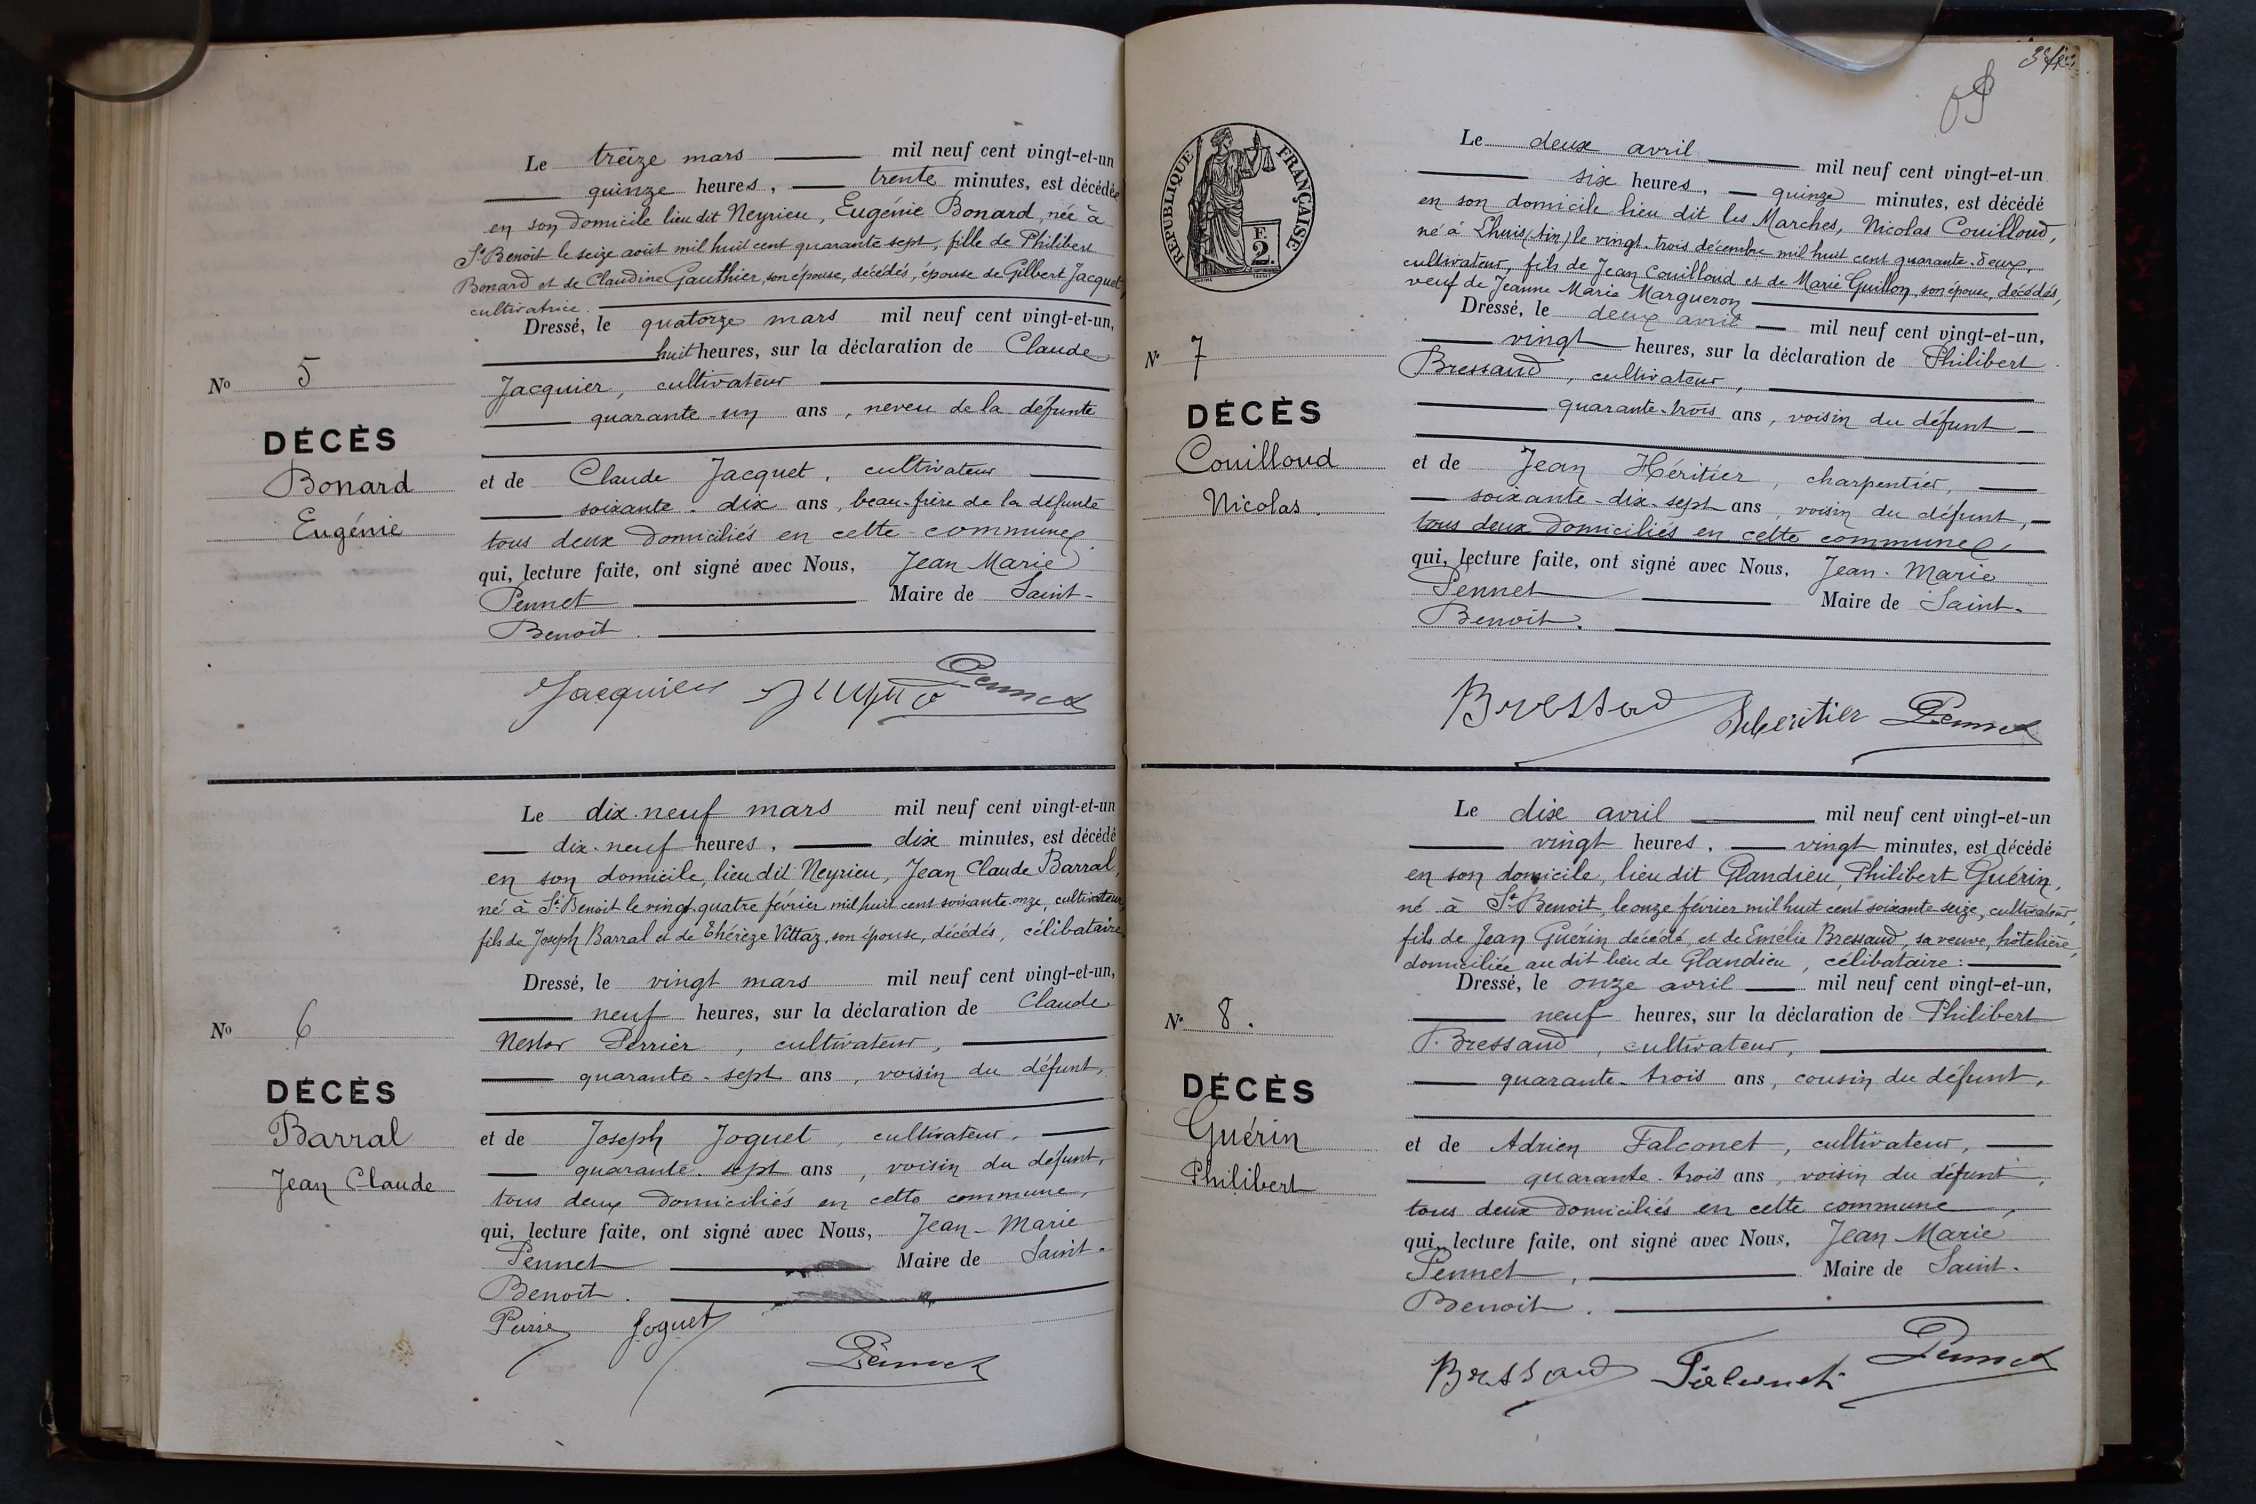 Le treize mars mil neuf cent vingt-et-un
quinze heures, trente minutes, est décédée
en son domicile lieu dit Neyrieu, Eugénie Bonard, née à
St Benoit le seize août mil huit cent quarante sept, fille de Philibert
Bonard et de Claudine Gauthier, son épouse, décédés, épouse de Gilbert Jacquet,
cultivatrice.
Dressé, le quatorze mars mil neuf cent vingt-et-un,
huit heures, sur la déclaration de Claude
No 5
Jacquier, cultivateur
quarante-un ans, neveu de la défunte
DÉCÈS
Bonard
Eugénie
et de Claude Jacquet, cultivateur
soixante-dix ans, beau-frère de la défunte
tous deux domiciliés en cette commune,
qui, lecture faite, ont signé avec Nous, Jean Marie
Pennet Maire de Saint-
Benoit.
Jacquier Pennet
Le dix-neuf mars mil neuf cent vingt-et-un
dix-neuf heures, dix minutes, est décédé
en son domicile, lieu dit Neyrieu, Jean Claude Barral,
né à St Benoit le vingt-quatre février mil huit cent soixante-onze, cultivateur,
fils de Joseph Barral et de Thérèze Vittaz, son épouse, décédés, célibataire.
Dressé, le vingt mars mil neuf cent vingt-et-un,
neuf heures, sur la déclaration de Claude
No 6
Nestor Perrier, cultivateur,
quarante-sept ans, voisin du défunt,
DÉCÈS
Barral
Jean Claude
et de Joseph Joguet, cultivateur,
quarante-sept ans, voisin du défunt,
tous deux domiciliés en cette commune,
qui, lecture faite, ont signé avec Nous, Jean-Marie
Pennet Maire de Saint-
Benoit.
Joguet
Pennet
RÉPUBLIQUE FRANÇAISE
F.
2.
Le deux avril mil neuf cent vingt-et-un
six heures, quinze minutes, est décédé
en son domicile lieu dit les Marches, Nicolas Couilloud,
né à Lhuis (Ain) le vingt-trois décembre mil huit cent quarante-deux,
cultivateur, fils de Jean Couilloud et de Marie Guillon, son épouse, décédés,
veuf de Jeanne Marie Margueron
Dressé, le deux avril mil neuf cent vingt-et-un,
vingt heures, sur la déclaration de Philibert
No 7
Bressand, cultivateur,
quarante-trois ans, voisin du défunt
DÉCÈS
Couilloud
Nicolas.
et de Jean Héritier, charpentier,
soixante-dix-sept ans, voisin du défunt,
tous deux domiciliés en cette commune,
qui, lecture faite, ont signé avec Nous, Jean-Marie
Pennet Maire de Saint-
Benoit.
Bressand Héritier Pennet
Le dix avril mil neuf cent vingt-et-un
vingt heures, vingt minutes, est décédé
en son domicile, lieu dit Glandieu, Philibert Guérin,
né à St Benoit, le onze février mil huit cent soixante-seize, cultivateur,
fils de Jean Guérin décédé, et de Emélie Bressand, sa veuve, hôtelière,
domiciliée au dit lieu de Glandieu, célibataire:
Dressé, le onze avril mil neuf cent vingt-et-un,
neuf heures, sur la déclaration de Philibert
No 8.
Bressand, cultivateur,
quarante-trois ans, cousin du défunt,
DÉCÈS
Guérin
Philibert
et de Adrien Falconet, cultivateur,
quarante-trois ans, voisin du défunt,
tous deux domiciliés en cette commune,
qui, lecture faite, ont signé avec Nous, Jean Marie
Pennet, Maire de Saint-
Benoit.
Bressand Falconet Pennet